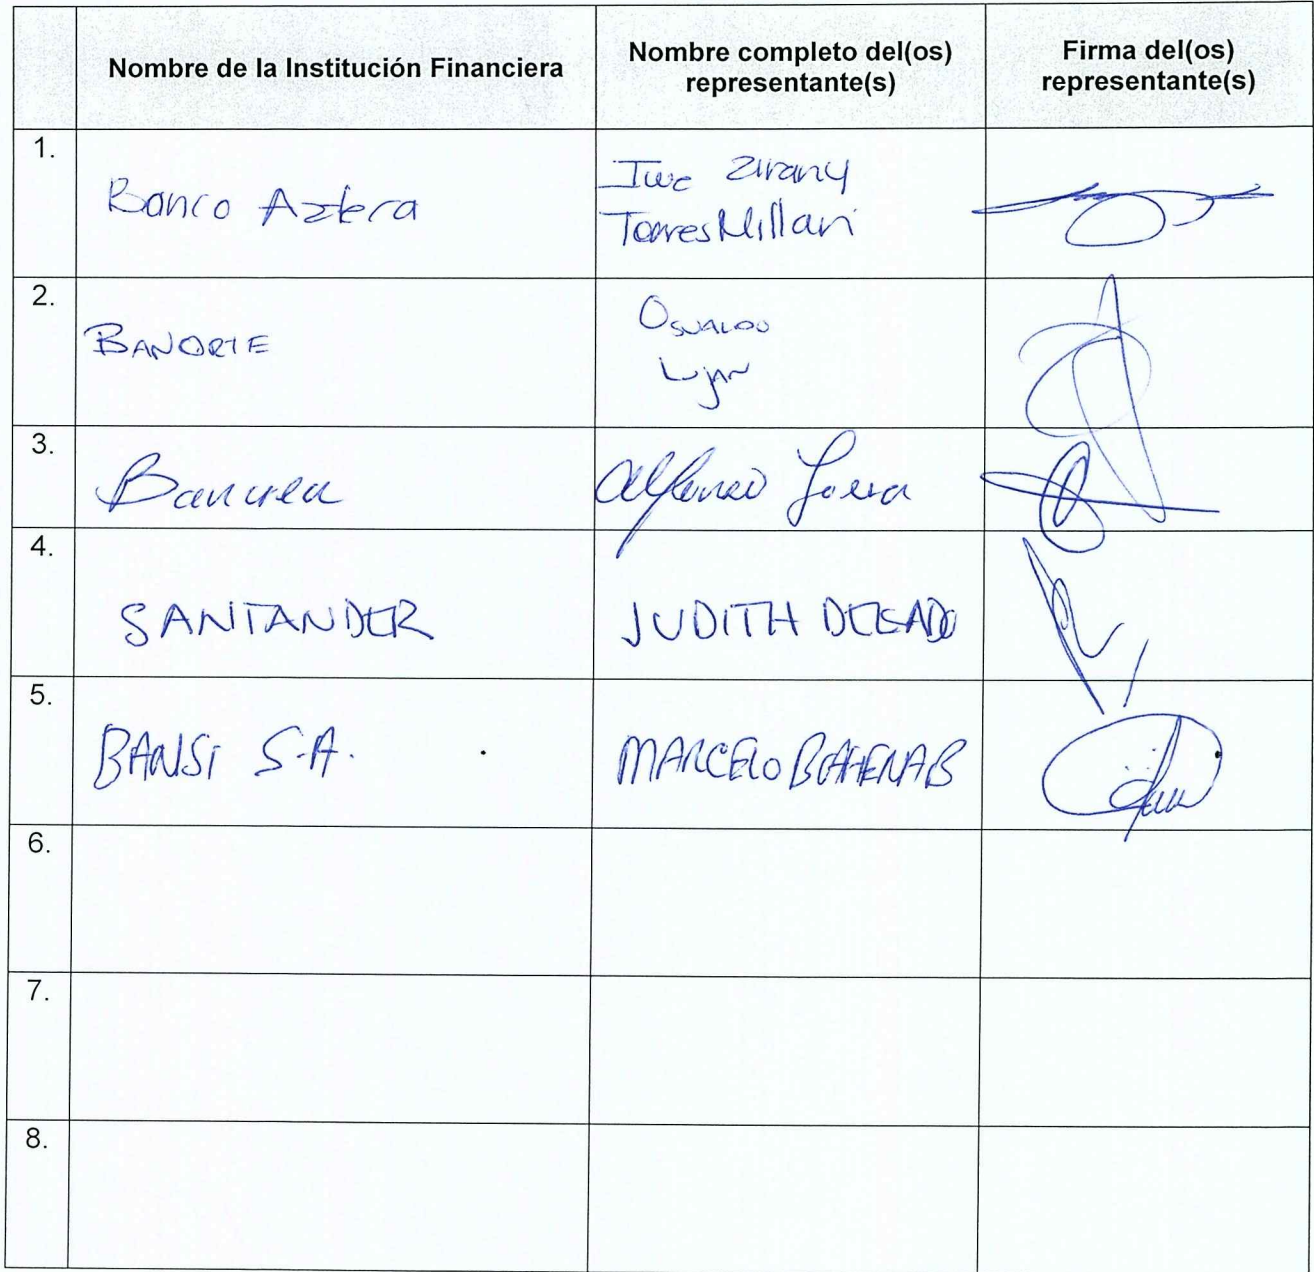 Nombre de la Institución Financiera
Nombre completo del(os)
representante(s)
Firma del(os)
representante(s)
1.
Banco Azteca
Torres Millan
2.
BANORTE
OSVALDO
LUJAN
3.
Alfonso
4.
SANTANDER
JUDITH DELGADO
5.
BANSI S.A.
MARCELO BAHENA B
6.
7.
8.